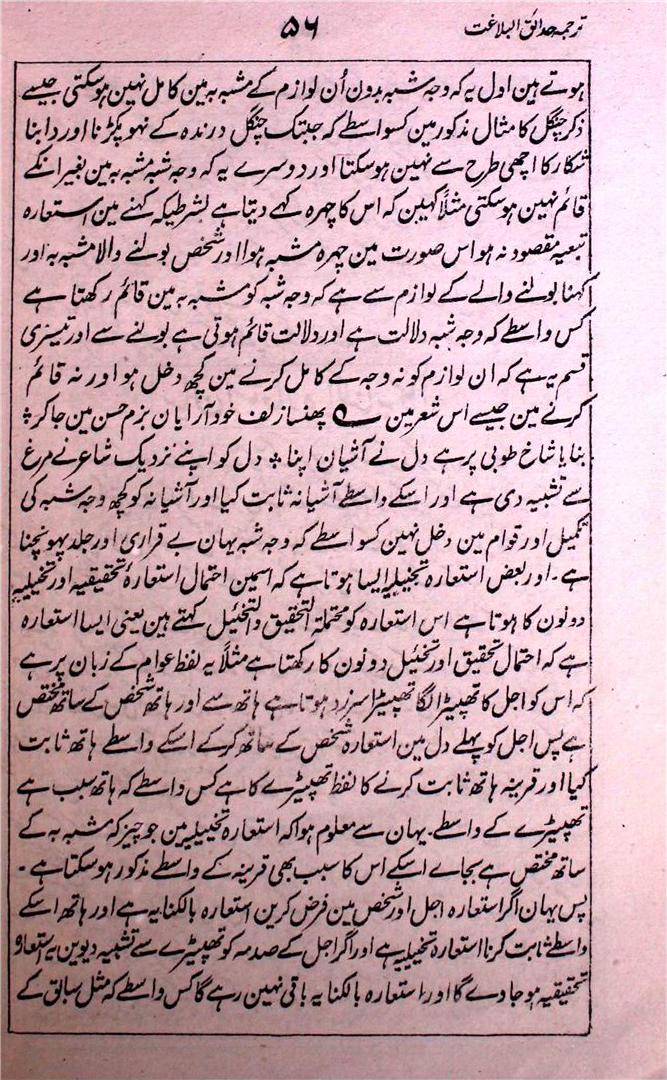 ترجمہ حدائق البلاغت
۵۶
ہوتے ہین اول یہ کہ وجہ شبہ بدون اُن لوازم کے مشبہ بہ مین کامل نہین ہوسکتی جیسے
ذکر چنگل کا مثال مذکور مین کسواسطے کہ جبتک چنگل درندہ کے نہو پکڑنا اور دابنا
شکار کا اچھی طرح سے نہین ہوسکتا اور دوسرے یہ کہ وجہ شبہ مشبہ بہ مین بغیر انکے
قائم نہین ہوسکتی مثلاً کہین کہ اس کا چہرہ کہے دیتا ہے بشرطیکہ کہنے مین استعارہ
تبعیہ مقصود نہ ہو اس صورت مین چہرہ مشبہ ہوا اور شخص بولنے والا مشبہ بہ اور
کہنا بولنے والے کے لوازم سے ہے کہ وجہ شبہ کو مشبہ بہ مین قائم رکھتا ہے
کس واسطے کہ وجہ شبہ دلالت ہے اور دلالت قائم ہوتی ہے بولنے سے اور تیسری
قسم یہ ہے کہ ان لوازم کو نہ وجہ کے کامل کرنے مین کچھ دخل ہو اور نہ قائم
کرنے مین جیسے اس شعر مین ؎ پھنسا زلف خود آرایان بزم حسن مین جاکر ٭
بنایا شاخ طوبی پر ہے دل نے آشیان اپنا ٭ دل کو اپنے نزدیک شاعر نے مرغ
سے تشبیہ دی ہے اور اسکے واسطے آشیانہ ثابت کیا اور آشیانہ کو کچھ وجہ شبہ کی
تکمیل اور قوام مین دخل نہین کسواسطے کہ وجہ شبہ یہان بے قراری اور جلد پہونچنا
ہے ۔ اور بعض استعارہ تخییلیہ ایسا ہوتا ہے کہ اسمین احتمال استعارۂ تحقیقیہ اور تخییلیہ
دونون کا ہوتا ہے اس استعارہ کو محتملۃ التحقیق والتخئیل کہتے ہین یعنی ایسا استعارہ
ہے کہ احتمال تحقیق اور تخئیل دونون کا رکھتا ہے مثلاً یہ لفظ عوام کے زبان پر ہے
کہ اس کو اجل کا تھپیڑا لگا تھپیڑا سرزد ہوتا ہے ہاتھ سے اور ہاتھ شخص کے ساتھ مختص
ہے پس اجل کو پہلے دل مین استعارہ شخص کے ساتھ کرکے اسکے واسطے ہاتھ ثابت
کیا اور قرینہ ہاتھ ثابت کرنے کا لفظ تھپیڑے کا ہے کس واسطے کہ ہاتھ سبب ہے
تھپیڑے کے واسطے ۔ یہان سے معلوم ہوا کہ استعارہ تخییلیہ مین جو چیز کہ مشبہ بہ کے
ساتھ مختص ہے بجاے اسکے اس کا سبب بھی قرینہ کے واسطے مذکور ہوسکتا ہے ۔
پس یہان اگر استعارہ اجل اور شخص مین فرض کرین استعارہ بالکنایہ ہے اور ہاتھ اسکے
واسطے ثابت کرنا استعارہ تخییلیہ ہے اور اگر اجل کے صدمہ کو تھپیڑے سے تشبیہ دیوین یہ استعارہ
تحقیقیہ ہو جاوے گا اور استعارہ بالکنایہ باقی نہین رہے گا کس واسطے کہ مثل سابق کے